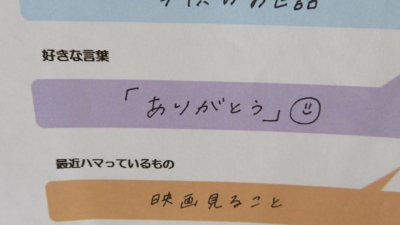 のお世話
好きな言葉
「ありがとう」
最近ハマっているもの
映画見ること